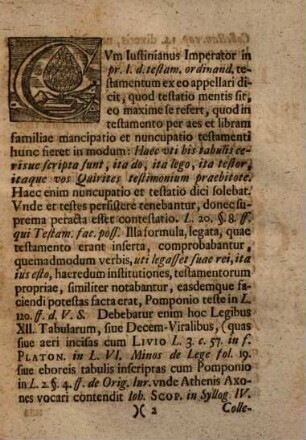 CVm Iustinianus Imperator in
pr. I. d. testam. ordinand. te-
stamentum ex eo appellari di-
cit, quod testatio mentis sit,
eo maxime se refert, quod in
testamento per aes et libram
familiae mancipatio et nuncupatio testamenti
hunc fieret in modum: Haec vti bis tabulis ce-
risue scripta sunt, ita do, ita lego, ita testor,
itaque vos Quirites testimonium praebitote.
Haec enim nuncupatio et testatio dici solebat.
Vnde et testes persistere tenebantur, donec su-
prema peracta esset contestatio. L. 20. §. 8. ff.
qui Testam. fac. poss. Illa formula, legata, quae
testamento erant inserta, comprobabantur,
quemadmodum verbis, uti legasset suae rei, ita
ius esto, haeredum institutiones, testamentorum
propriae, similiter notabantur, easdemque fa-
ciendi potestas facta erat, Pomponio teste in L.
120. ff. d. V. S. Debebatur enim hoc Legibus
XII. Tabularum, siue Decem-Viralibus, (quas
siue aeri incisas cum LIVIO L. 3. c. 57. in f.
PLATON. in L. VI. Minos de Lege fol. 19.
siue eboreis tabulis inscriptas cum Pomponio
in L. 2. §. 4. ff. de Orig. Iur. vnde Athenis Axo-
nes vocari contendit Iob. SCOP. in Syllog. IV.
)( 2 Colle-